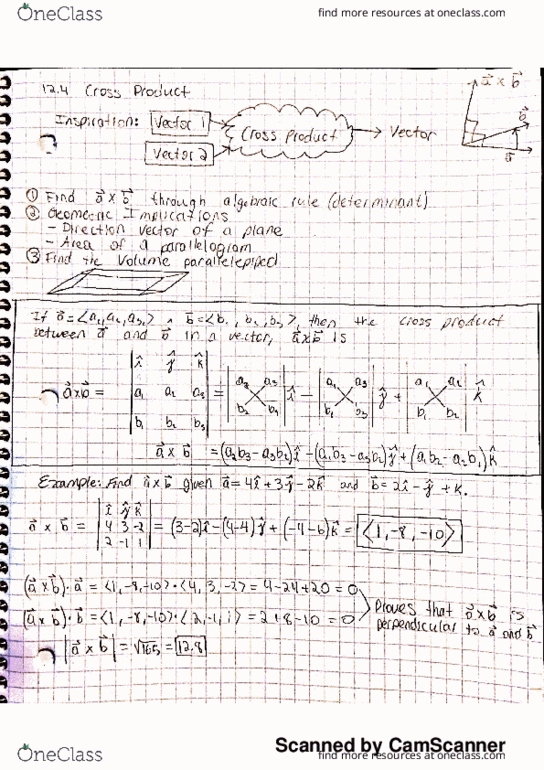 OneClass
find more resources at oneclass.com
12.4 Cross Product
a⃗ x b⃗
b⃗
a⃗
Inspiration: Vector 1
Cross Product → Vector
Vector 2
① Find a⃗ x b⃗ through algebraic rule (determinant)
② Geometric Implications
- Direction vector of a plane
- Area of a parallelogram
③ Find the Volume parallelepiped
If a⃗ = <a₁, a₂, a₃>, b⃗ = <b₁, b₂, b₃>, then the cross product
between a⃗ and b⃗ in a vector, a⃗xb⃗ is
î ĵ k̂
a⃗xb⃗ = | a₁ a₂ a₃ | = | a₂ a₃ | î - | a₁ a₃ | ĵ + | a₁ a₂ | k̂
b₁ b₂ b₃ b₂ b₃ b₁ b₃ b₁ b₂
a⃗ x b⃗ = (a₂b₃-a₃b₂)î - (a₁b₃-a₃b₁)ĵ + (a₁b₂-a₂b₁)k̂
Example: Find a⃗xb⃗ given a⃗ = 4î+3ĵ-2k̂ and b⃗ = 2î-ĵ+k.
î ĵ k̂
a⃗ x b⃗ = | 4 3 -2 | = (3-2)î-(4-4)ĵ+(-4-6)k̂ = <1,-8,-10>
2 -1 1
(a⃗ x b⃗)·a⃗ = <1,-8,-10>·<4,3,-2> = 4-24+20=0
(a⃗ x b⃗)·b⃗ = <1,-8,-10>·<2,-1,1> = 2+8-10=0
Proves that a⃗xb⃗ is
perpendicular to a⃗ and b⃗
|a⃗ x b⃗| = √165 = 12.8
Scanned by CamScanner
OneClass
find more resources at oneclass.com